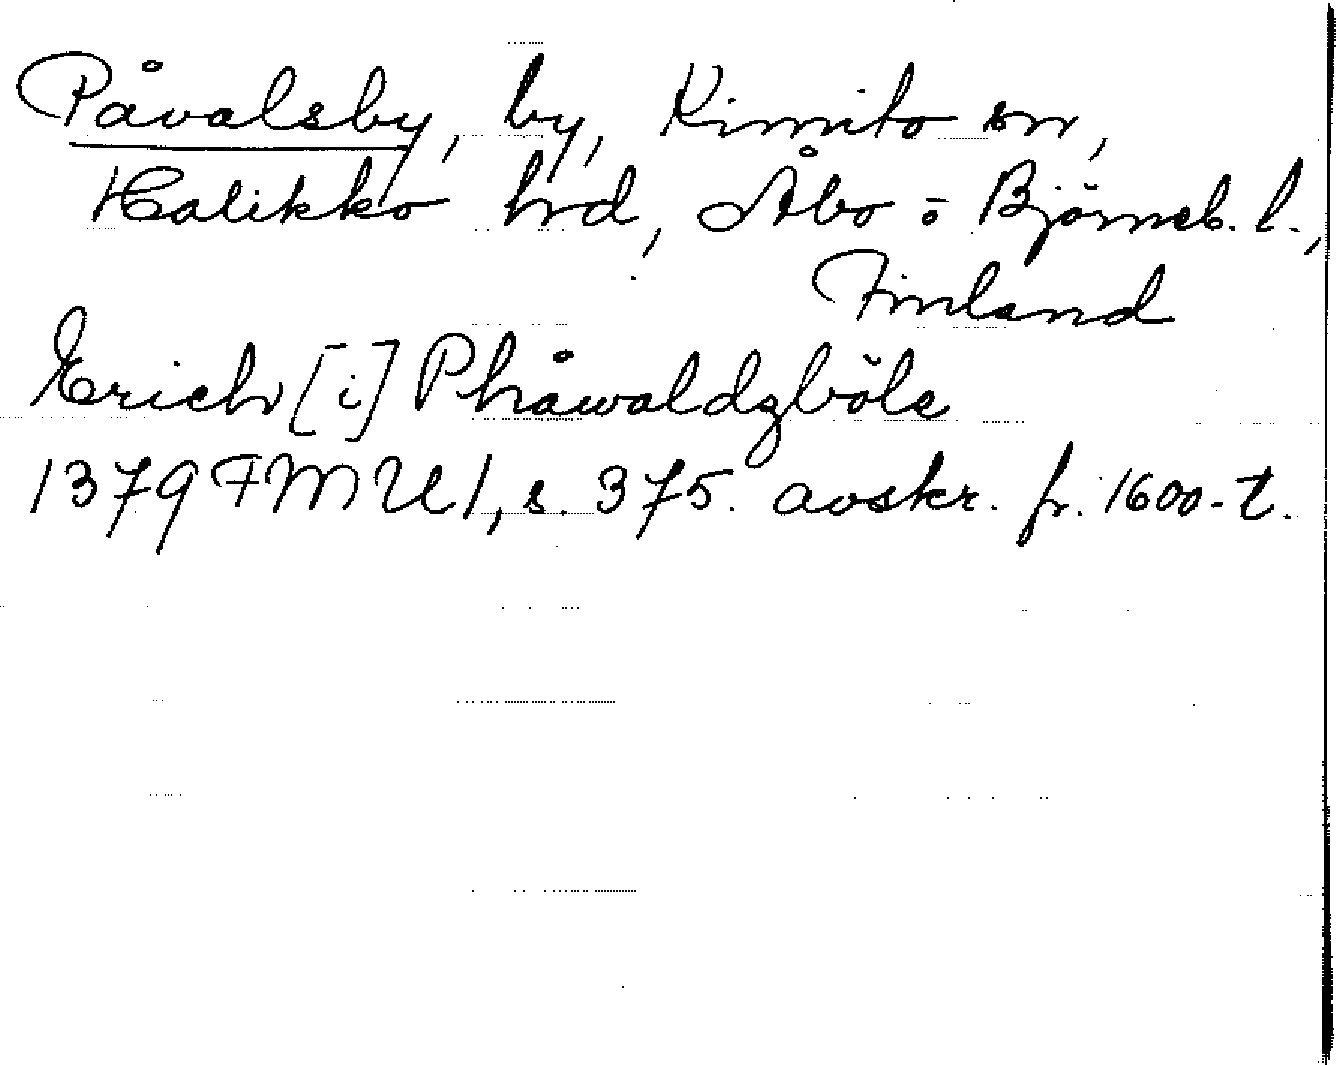 Påvalsby, by, Kimito sn,
Halikko hrd, Åbo o Björneb. l.,
Finland
Erich [i] Phåwaldzböle
1379 FMU 1, s. 375. avskr. fr. 1600-t.